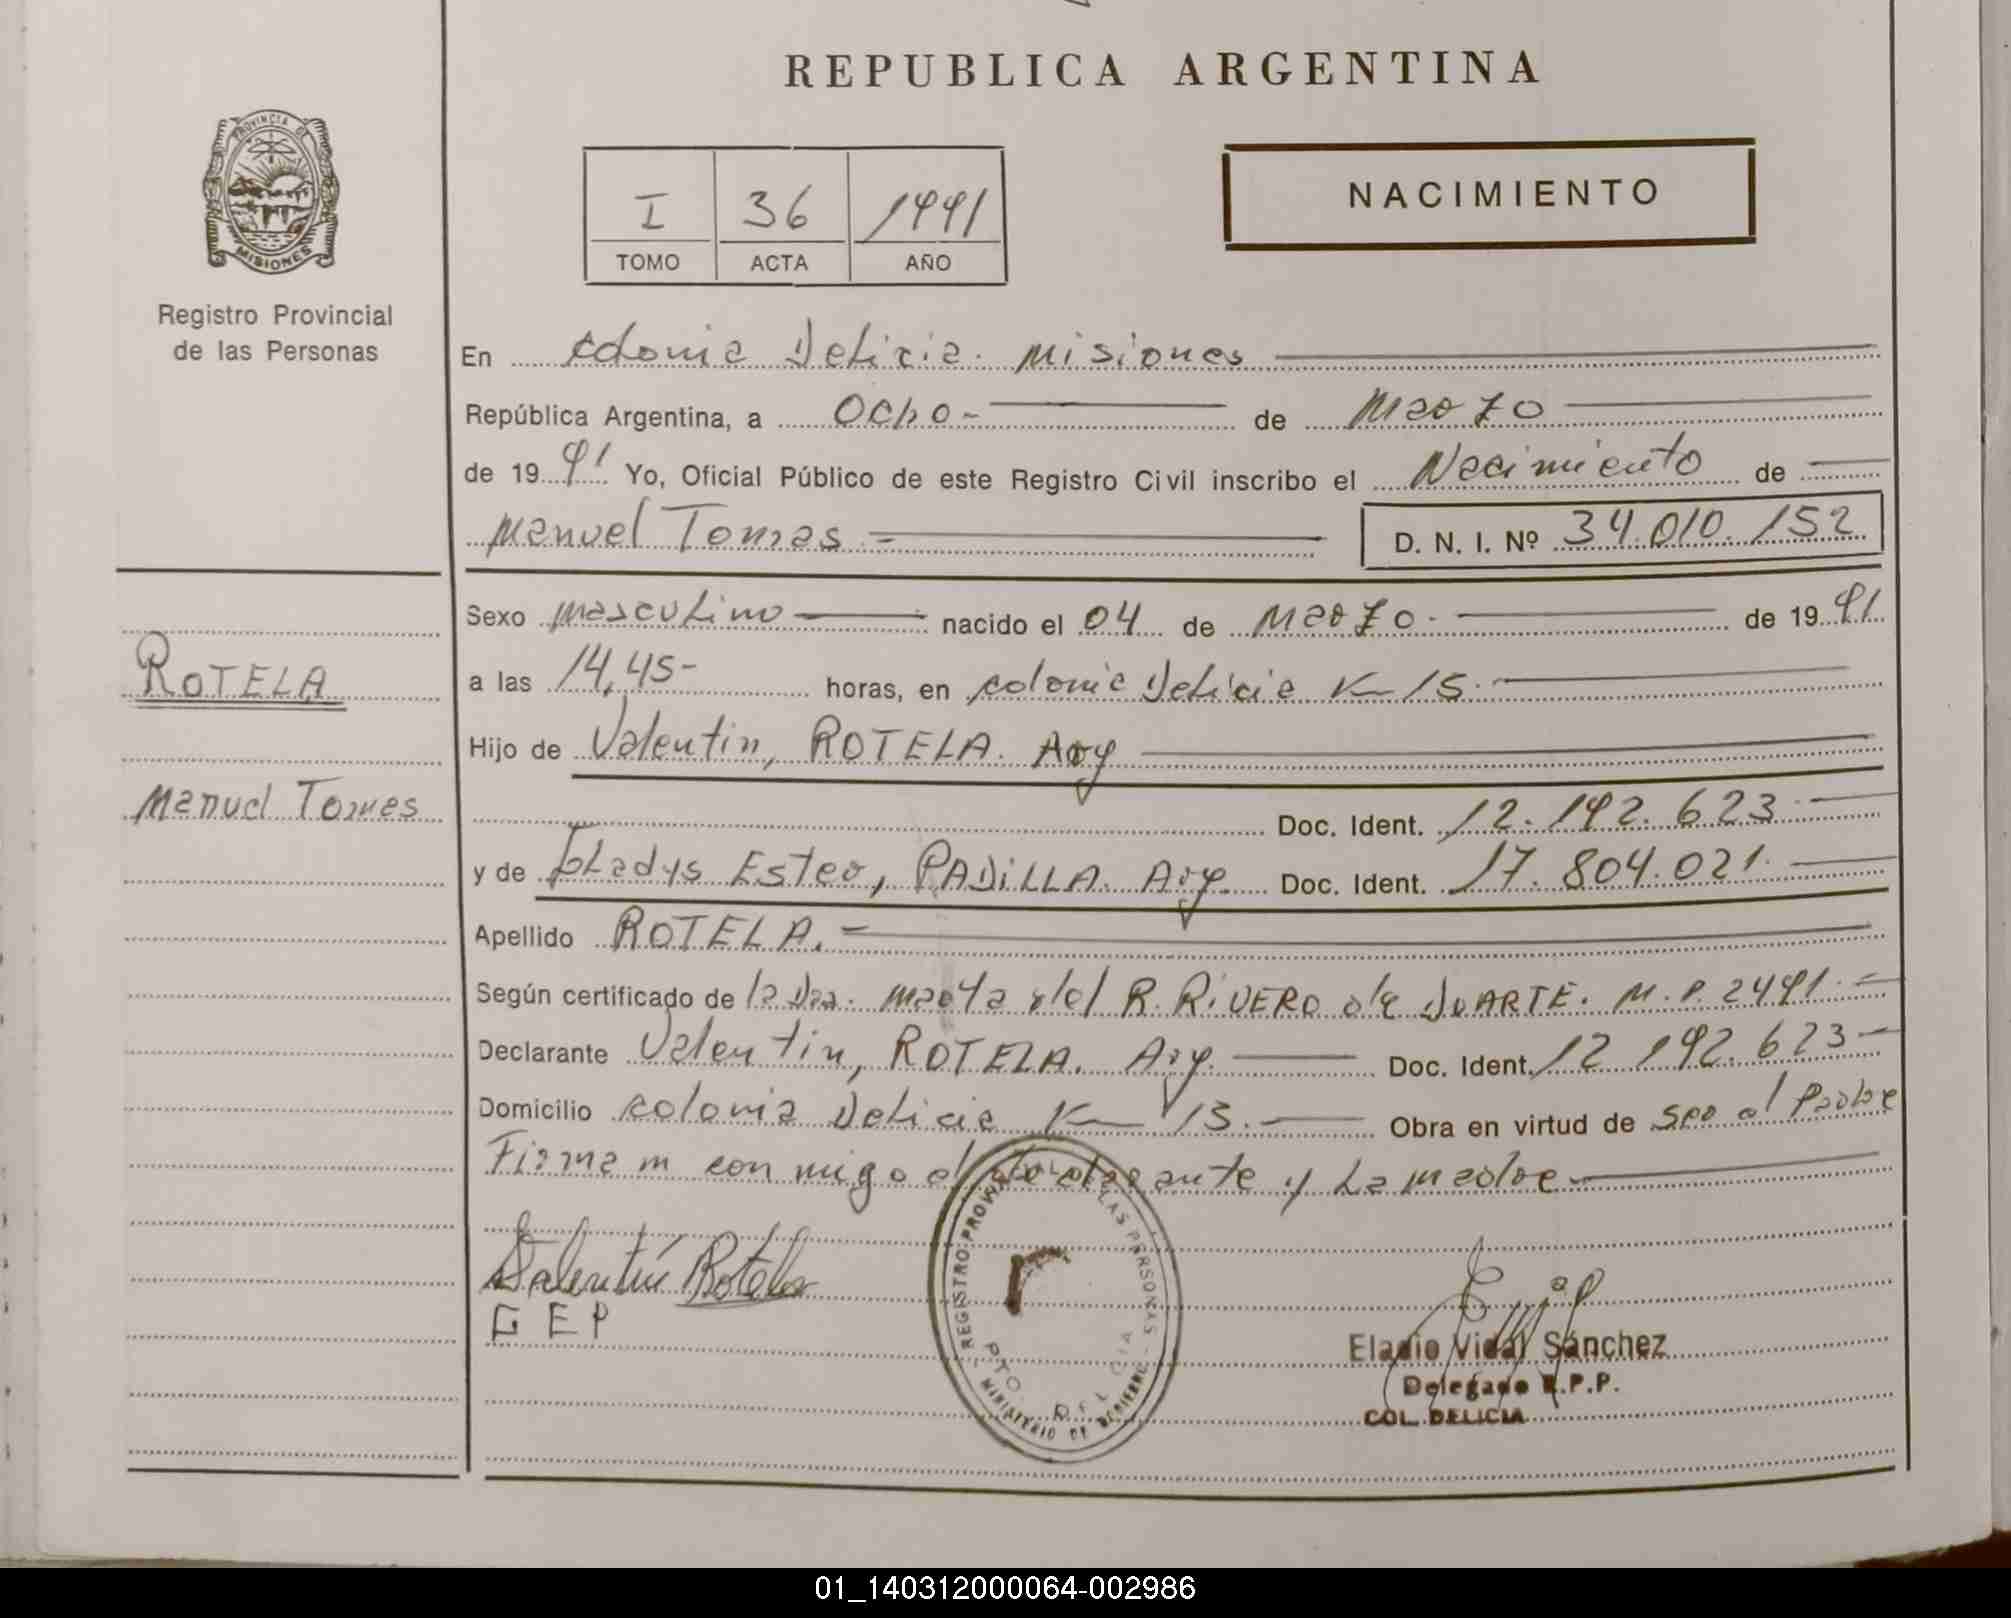 REPUBLICA ARGENTINA
PROVINCIA DE
MISIONES
Registro Provincial
de las Personas
I 36 1991
TOMO ACTA AÑO
NACIMIENTO
En Colonia Delicia. Misiones
República Argentina, a Ocho - de Marzo
de 19 91 Yo, Oficial Público de este Registro Civil inscribo el Nacimiento de
Manuel Tomas - D. N. I. Nº 34.010.152
Sexo masculino nacido el 04 de Marzo. de 19 91
ROTELA
a las 14,45- horas, en colonia Delicia K 15.
Hijo de Valentin, ROTELA. Arg
Manuel Tomas
Doc. Ident. 12.192.623
y de Gladys Ester, PADILLA. Arg. Doc. Ident. 17.804.021.
Apellido ROTELA. -
Según certificado de la Dra. Marta del R. RIVERO de DUARTE. M.P. 2491.
Declarante Valentin, ROTELA. Arg. Doc. Ident. 12 192.623 -
Domicilio colonia Delicia K 15. Obra en virtud de ser el Padre
Firma m con migo el declarante y La madre
Valentín Rotela
G E P
REGISTRO PROVINCIAL DE LAS PERSONAS
PTO. DELICIA
MINISTERIO DE GOBIERNO
Eladio Vidal Sánchez
Delegado R.P.P.
COL. DELICIA
01_140312000064-002986